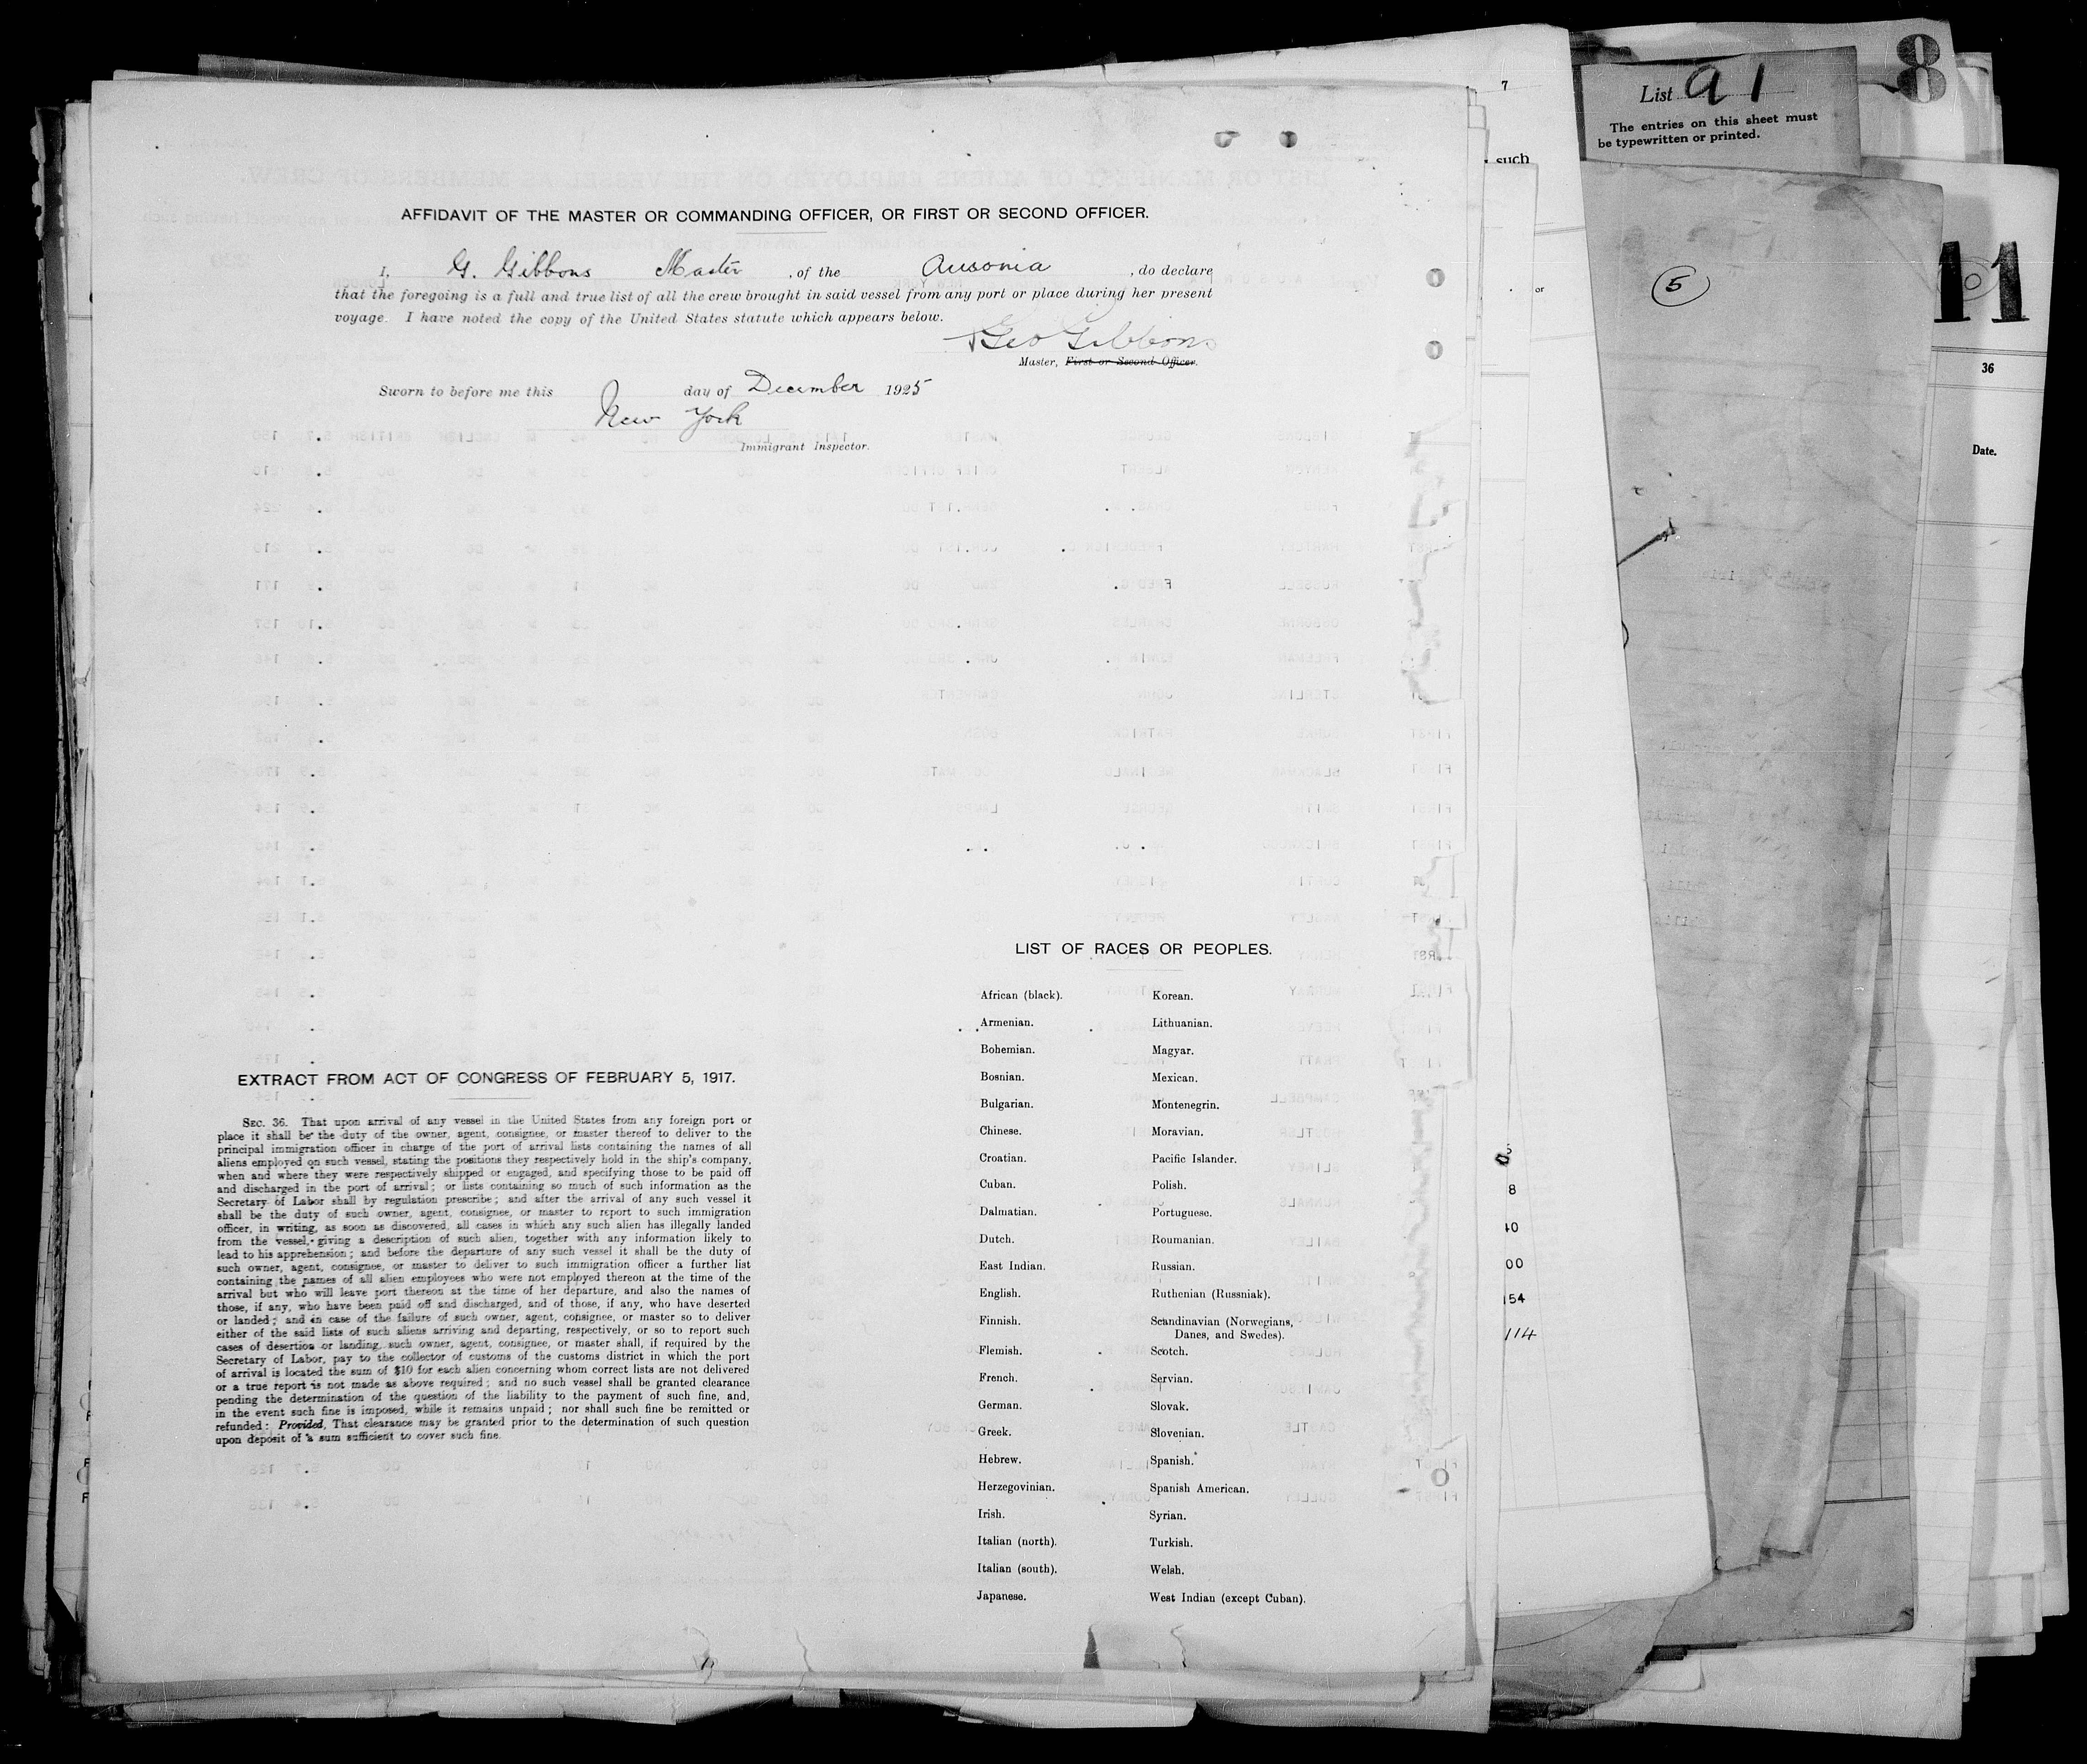 AFFIDAVIT OF THE MASTER OR COMMANDING OFFICER, OR FIRST OR SECOND OFFICER.
I, G. Gibbons Master, of the Ausonia, do declare
that the foregoing is a full and true list of all the crew brought in said vessel from any port or place during her present
voyage. I have noted the copy of the United States statute which appears below.
Geo Gibbons
Master, First or Second Officer.
Sworn to before me this day of December 1925
New York
Immigrant Inspector.
EXTRACT FROM ACT OF CONGRESS OF FEBRUARY 5, 1917.
SEC. 36. That upon arrival of any vessel in the United States from any foreign port or
place it shall be the duty of the owner, agent, consignee, or master thereof to deliver to the
principal immigration officer in charge of the port of arrival lists containing the names of all
aliens employed on such vessel, stating the positions they respectively hold in the ship's company,
when and where they were respectively shipped or engaged, and specifying those to be paid off
and discharged in the port of arrival; or lists containing so much of such information as the
Secretary of Labor shall by regulation prescribe; and after the arrival of any such vessel it
shall be the duty of such owner, agent, consignee, or master to report to such immigration
officer, in writing, as soon as discovered, all cases in which any such alien has illegally landed
from the vessel, giving a description of such alien, together with any information likely to
lead to his apprehension; and before the departure of any such vessel it shall be the duty of
such owner, agent, consignee, or master to deliver to such immigration officer a further list
containing the names of all alien employees who were not employed thereon at the time of the
arrival but who will leave port thereon at the time of her departure, and also the names of
those, if any, who have been paid off and discharged, and of those, if any, who have deserted
or landed; and in case of the failure of such owner, agent, consignee, or master so to deliver
either of the said lists of such aliens arriving and departing, respectively, or so to report such
cases of desertion or landing, such owner, agent, consignee, or master shall, if required by the
Secretary of Labor, pay to the collector of customs of the customs district in which the port
of arrival is located the sum of $10 for each alien concerning whom correct lists are not delivered
or a true report is not made as above required; and no such vessel shall be granted clearance
pending the determination of the question of the liability to the payment of such fine, and,
in the event such fine is imposed, while it remains unpaid; nor shall such fine be remitted or
refunded: Provided, That clearance may be granted prior to the determination of such question
upon deposit of a sum sufficient to cover such fine.
LIST OF RACES OR PEOPLES.
African (black).
Armenian.
Bohemian.
Bosnian.
Bulgarian.
Chinese.
Croatian.
Cuban.
Dalmatian.
Dutch.
East Indian.
English.
Finnish.
Flemish.
French.
German.
Greek.
Hebrew.
Herzegovinian.
Irish.
Italian (north).
Italian (south).
Japanese.
Korean.
Lithuanian.
Magyar.
Mexican.
Montenegrin.
Moravian.
Pacific Islander.
Polish.
Portuguese.
Roumanian.
Russian.
Ruthenian (Russniak).
Scandinavian (Norwegians,
Danes, and Swedes).
Scotch.
Servian.
Slovak.
Slovenian.
Spanish.
Spanish American.
Syrian.
Turkish.
Welsh.
West Indian (except Cuban).
7
such
or
8
40
00
154
114
List 91
The entries on this sheet must
be typewritten or printed.
5
8
11
36
Date.